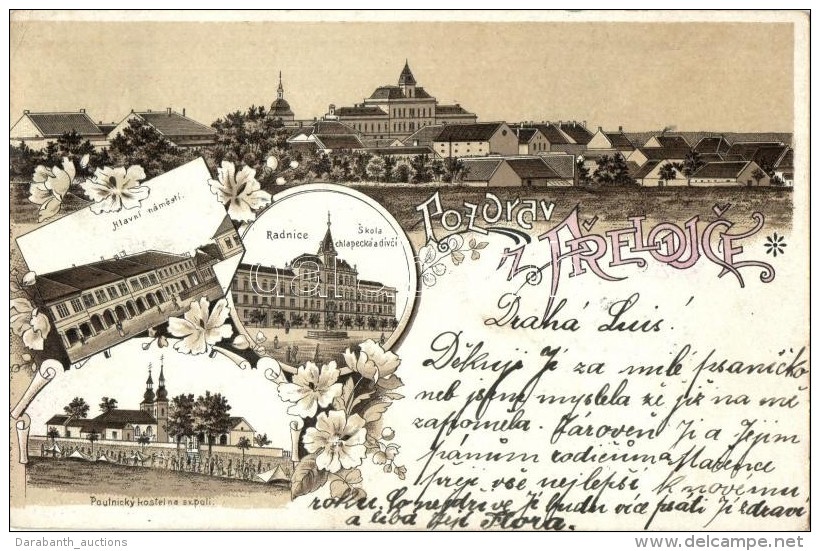 Hlavní náměstí.
Radnice
Škola
chlapecká a dívčí
Pozdrav
z PŘELOJČE
Drahá Luis!
Děkuji Jí za milé psaníčko
neb jsem myslela že již na mě
zapoměla. Zároveň Jí a Jejím
pánům rodičům a Mařence
přeji vše nejlepší k novému
roku. Co nejdříve Jí budu více psáti Jí zdraví
a líbá Její Flora.
Poutnický kostel na sv. poli.
Darabanth_auctions
delcampe.net